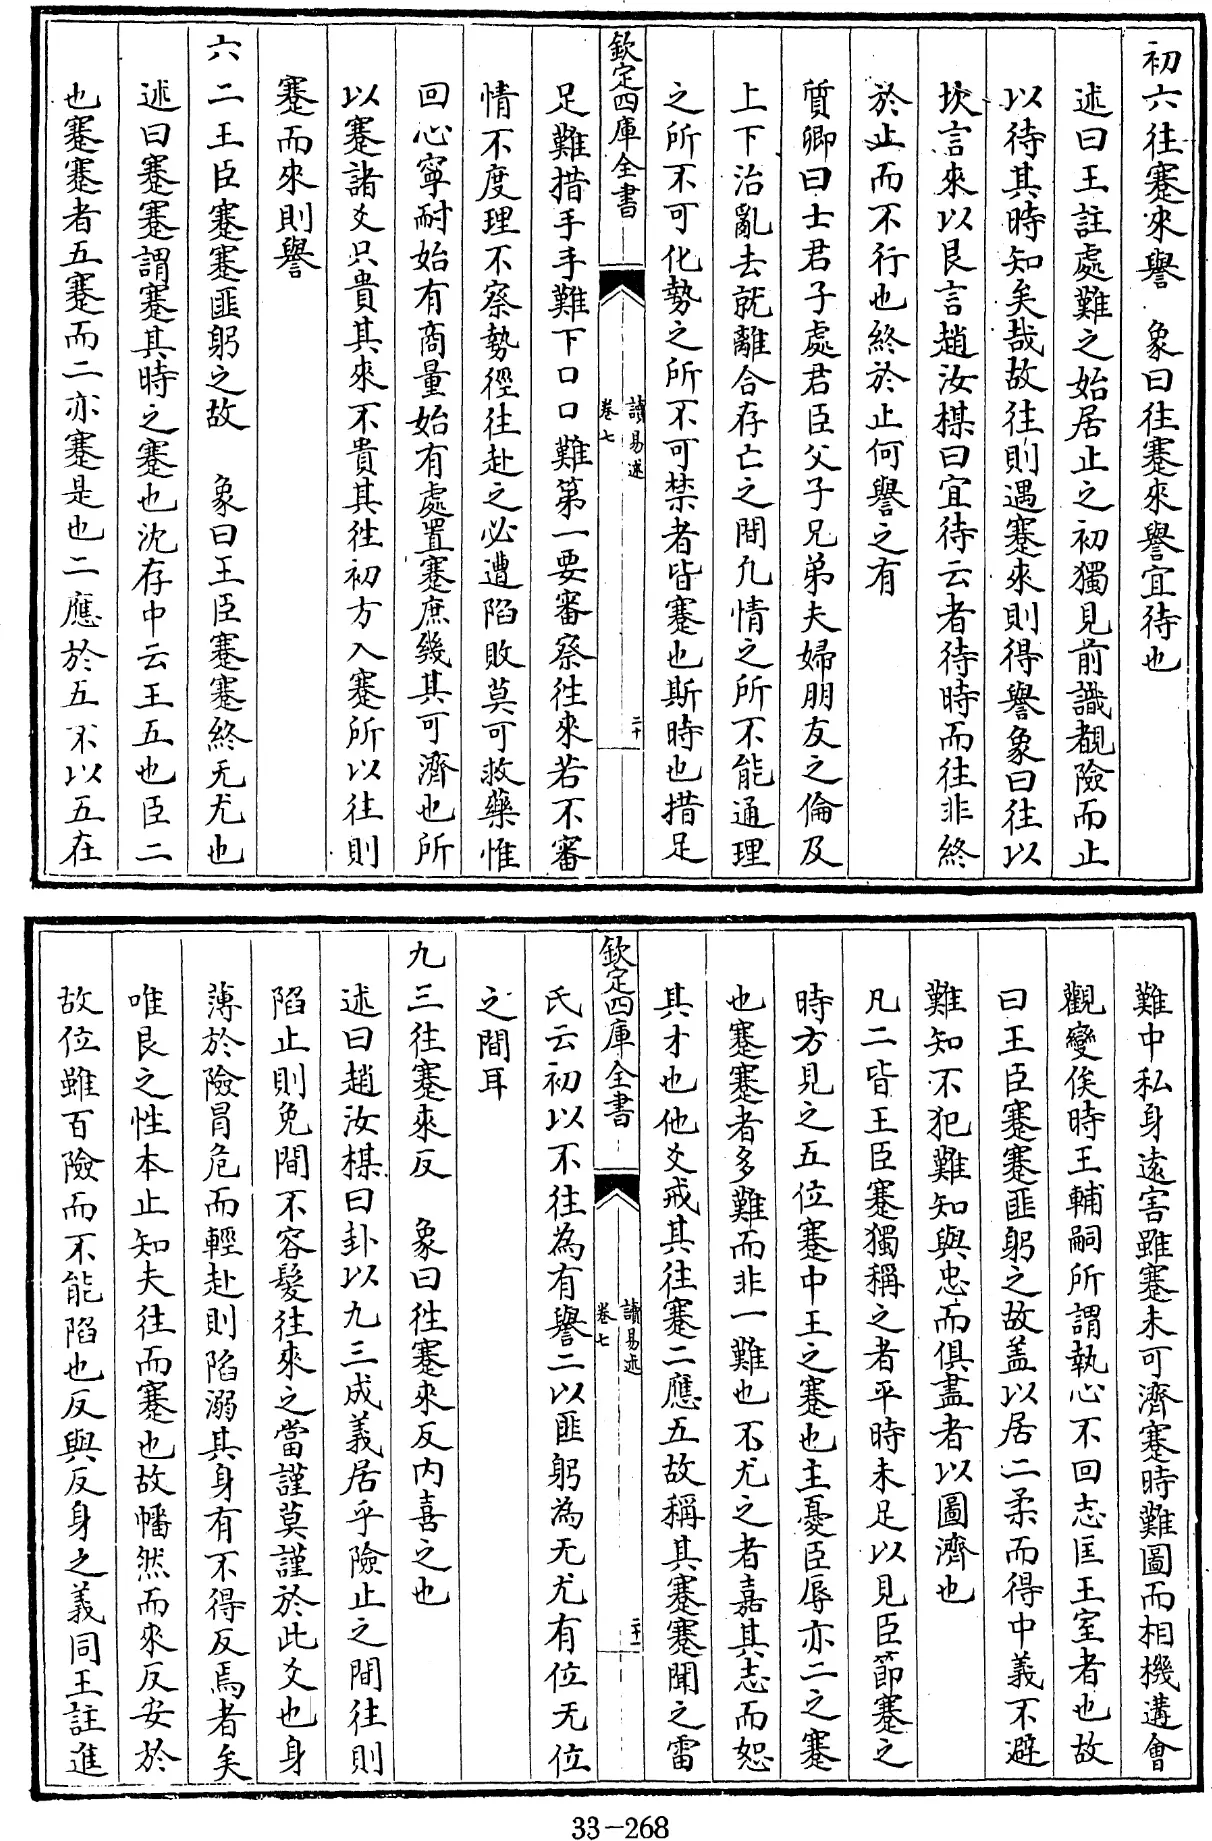 初六往蹇來譽　象曰往蹇來譽宜待也
述曰王註處難之始居止之初獨見前識覩險而止
以待其時知矣哉故往則遇蹇來則得譽象曰往以
坎言來以艮言趙汝楳曰宜待云者待時而往非終
於止而不行也終於止何譽之有
質卿曰士君子處君臣父子兄弟夫婦朋友之倫及
上下治亂去就離合存亡之間凡情之所不能通理
之所不可化勢之所不可禁者皆蹇也斯時也措足
欽定四庫全書
讀易述
卷七
二十
足難措手手難下口口難第一要審察往來若不審
情不度理不察勢徑往赴之必遭陷敗莫可救藥惟
回心寧耐始有商量始有處置蹇庶幾其可濟也所
以蹇諸爻只貴其來不貴其往初方入蹇所以往則
蹇而來則譽
六二王臣蹇蹇匪躬之故　象曰王臣蹇蹇終无尤也
述曰蹇蹇謂蹇其時之蹇也沈存中云王五也臣二
也蹇蹇者五蹇而二亦蹇是也二應於五不以五在
難中私身遠害雖蹇未可濟蹇時難圖而相機遘會
觀變俟時王輔嗣所謂執心不回志匡王室者也故
曰王臣蹇蹇匪躬之故盖以居二柔而得中義不避
難知不犯難知與忠而俱盡者以圖濟也
凡二皆王臣蹇獨稱之者平時未足以見臣節蹇之
時方見之五位蹇中王之蹇也主憂臣辱亦二之蹇
也蹇蹇者多難而非一難也不尤之者嘉其志而恕
其才也他爻戒其往蹇二應五故稱其蹇蹇聞之雷
欽定四庫全書
讀易述
卷七
二十一
氏云初以不往為有譽二以匪躬為无尤有位无位
之間耳
九三往蹇來反　象曰往蹇來反內喜之也
述曰趙汝楳曰卦以九三成義居乎險止之間往則
陷止則免間不容髮往來之當謹莫謹於此爻也身
薄於險冒危而輕赴則陷溺其身有不得反焉者矣
唯艮之性本止知夫往而蹇也故幡然而來反安於
故位雖百險而不能陷也反與反身之義同王註進
33-268